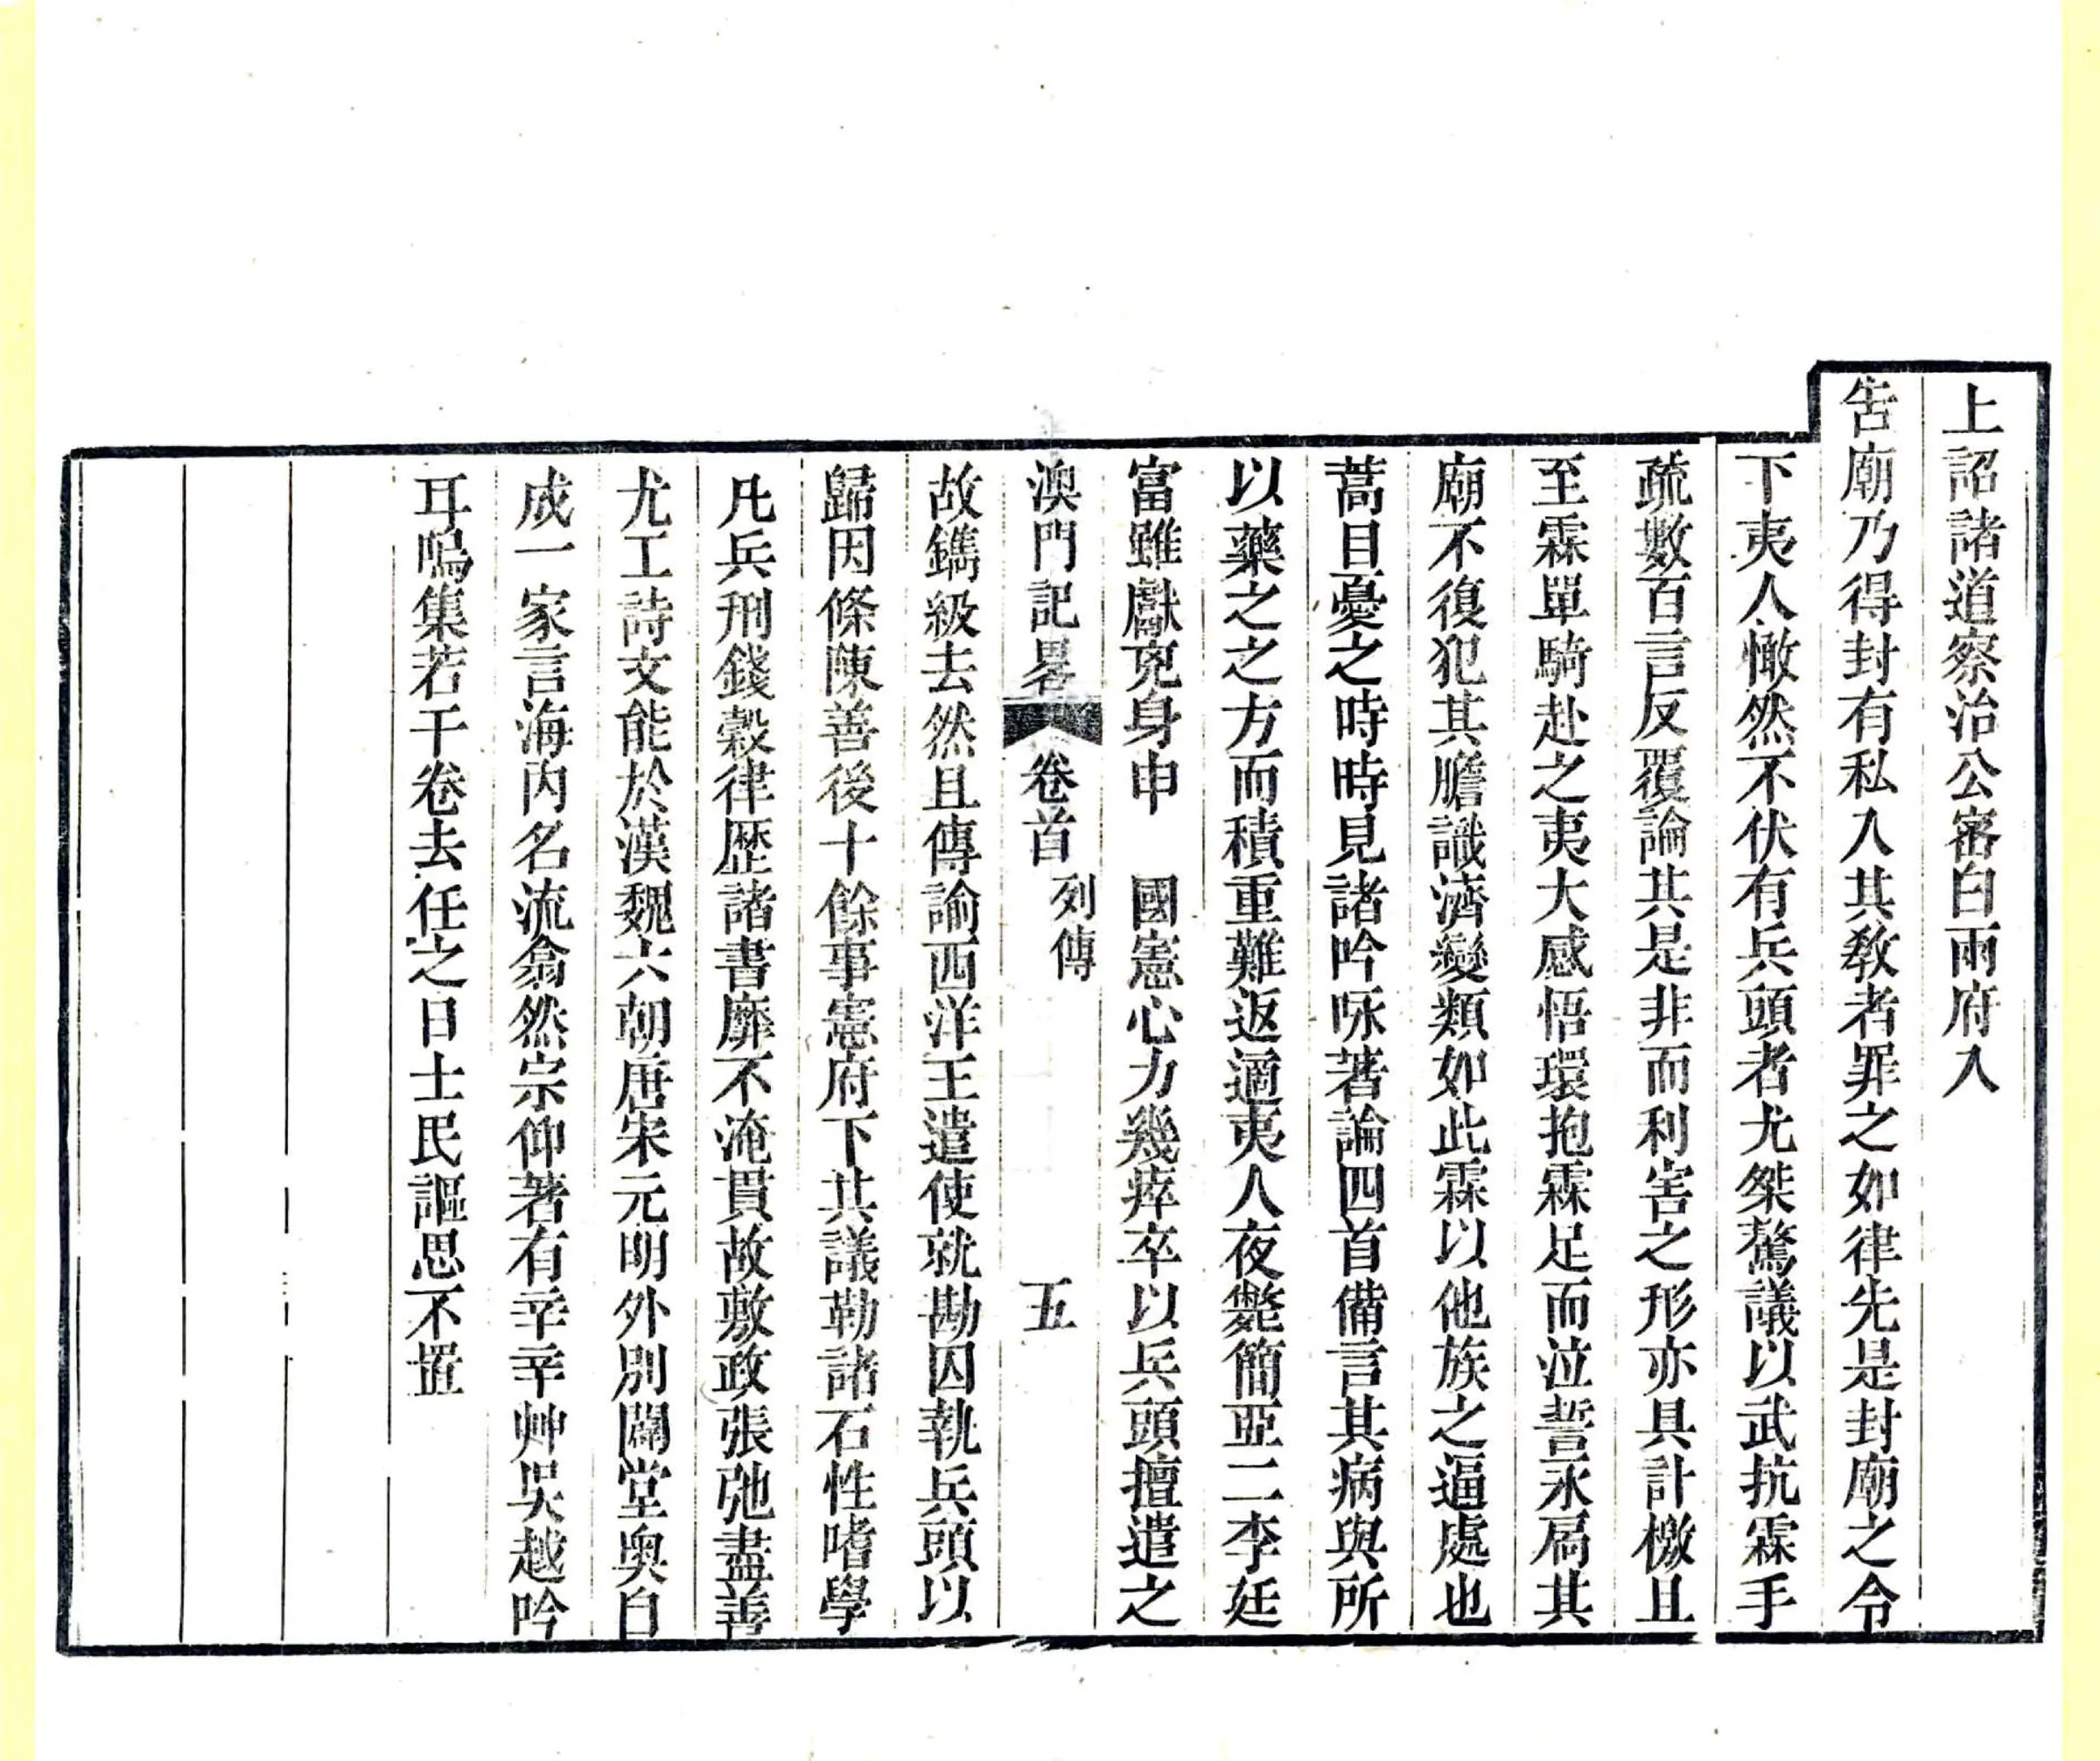 上詔諸道察治公審白兩府入
吿廟乃得封有私入其敎者罪之如律先是封廟之令
下夷人憿然不伏有兵頭者尤桀驁議以武抗霖手
疏數百言反覆論其是非而利害之形亦具計檄且
至霖單騎赴之夷大感悟環抱霖足而泣誓永扃其
廟不復犯其膽識濟變類如此霖以他族之逼處也
蒿目憂之時時見諸吟咏著論四首備言其病與所
以藥之之方而積重難返適夷人夜斃簡亞二李廷
富雖獻兇身申　國憲心力幾瘁卒以兵頭擅遣之
澳門記畧　卷首　列傳　五
故鐫級去然且傳諭西洋王遣使就勘囚執兵頭以
歸因條陳善後十餘事憲府下其議勒諸石性嗜學
凡兵刑錢穀律歷諸書靡不淹貫故敷政張弛盡善
尤工詩文能於漢魏六朝唐宋元明外別闢堂奥自
成一家言海内名流翕然宗仰著有辛辛艸吳越吟
耳鳴集若干卷去任之日士民謳思不置